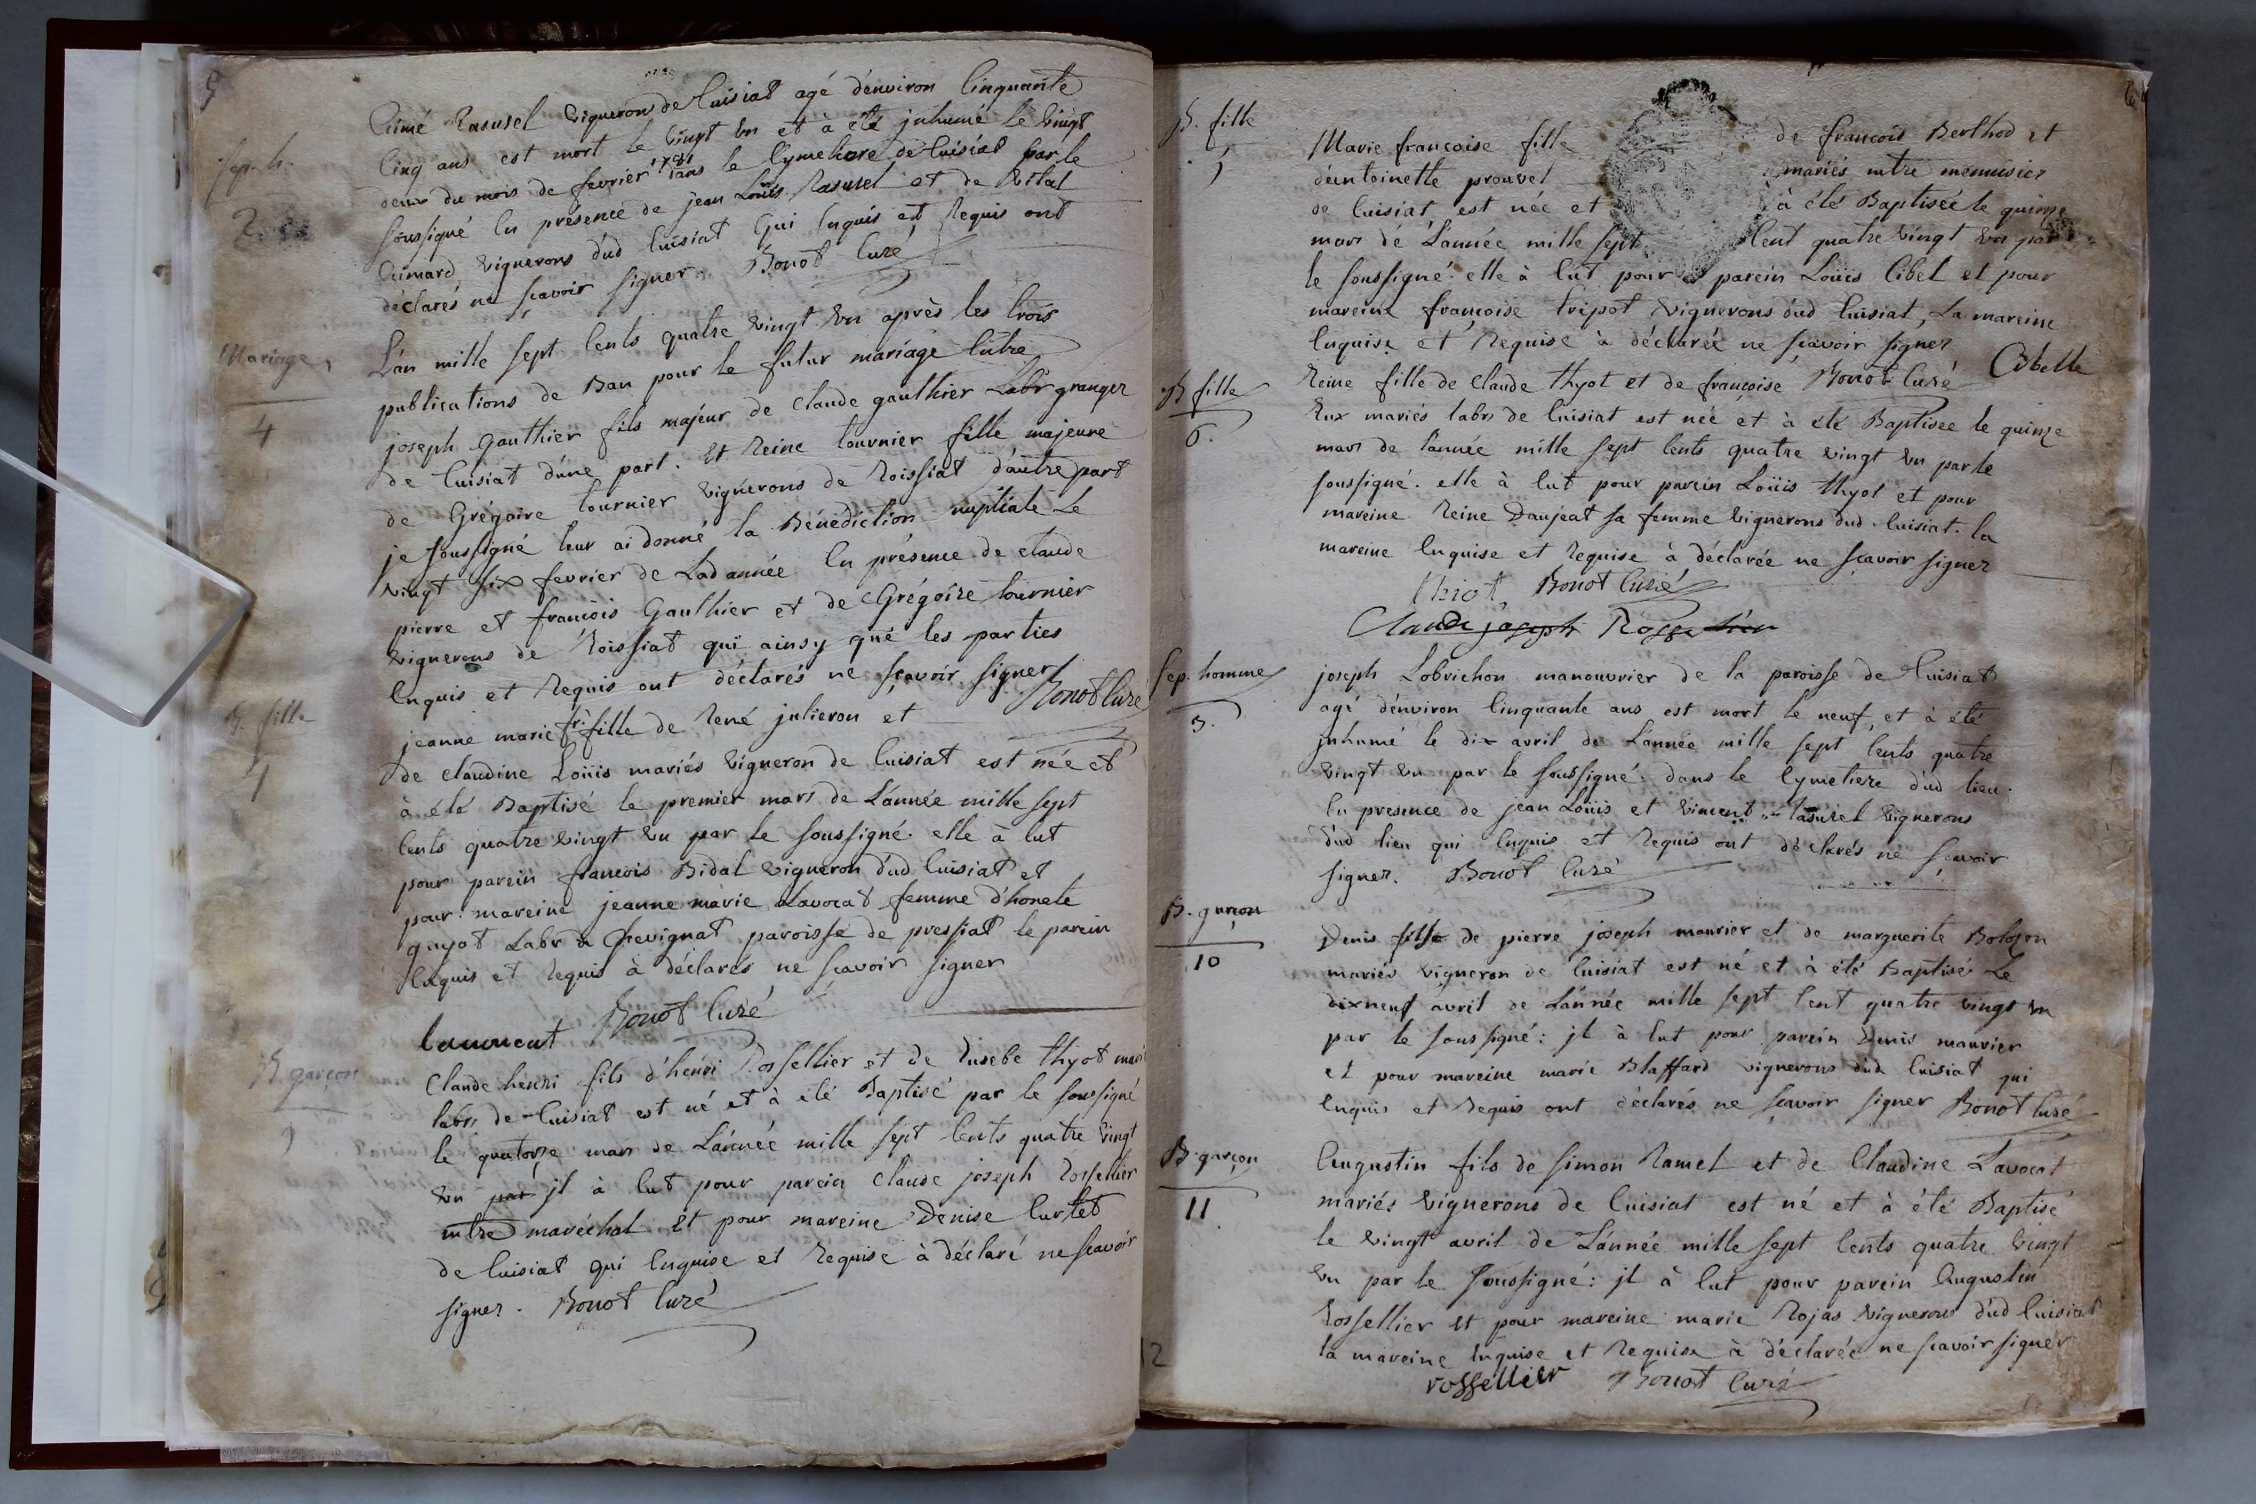 sep. h.
Aimé Rasurel vigneron de Cuisiat agé d'environ Cinquante
Cinq ans est mort le vingt un et à été jnhumé le vingt
deux du mois de fevrier 1781 dans le Cymetiere de Cuisiat par le
soussigné En présence de jean Loüis Rasurel et de vital
Cumard vignerons d'ud Cuisiat Qui Enquis et Requis ont
déclarés ne sçavoir signer. Bonot Curé
Mariage
4
L'an mille sept Cents quatre vingt un après les trois
publications de Ban pour le futur mariage Entre
joseph Gauthier fils majeur de Claude gauthier Labr granger
de Cuisiat d'une part. Et Reine tournier fille majeure
de Grégoire tournier vignerons de Roissiat d'autre part
je soussigné leur ai donné la Bénédiction nuptiale Le
vingt six fevrier de Lad année En présence de claude
pierre et francois Gauthier et de Grégoire tournier
vignerons de Roissiat qui ainsy que les parties
Enquis et Requis ont déclarés ne sçavoir signer
Bonot Curé
B. fille
jeanne marie fr. fille de René julieron et
de claudine Loüis mariés vigneron de Cuisiat est née et
à été Baptisé le premier mars de L'année mille sept
Cents quatre vingt un par le soussigné. elle à Eut
pour parein francois Bidal vigneron d'ud Cuisiat et
pour mareine jeanne marie Lavocat femme d'honete
guyot Labr à Chevignat paroisse de pressiat le parein
Enquis et Requis à déclarés ne sçavoir signer
lauoucat Bonot Curé
B garçon
Claude henri fils d'henri Rossellier et de Eusebe thyot mari
labrs de Cuisiat est né et à été Baptisé par le soussigné
le quatorze mars de L'année mille sept Cents quatre vingt
un par jl à Eut pour parein Claude joseph Rossellier
mtre maréchal Et pour mareine Denise Curtet
de Cuisiat qui Enquise et Requise à déclaré ne sçavoir
signer. Bonot Curé
B. fille
Marie françoise fille de francois Berthod et
d'antoinette prouvel mariés mtre menuisier
de Cuisiat, est née et à été Baptisée le quinze
mars de L'année mille sept Cent quatre vingt un par
le soussigné. elle à Eut pour parein Loüis Cibel et pour
mareine françoise tripot vignerons d'ud Cuisiat, La mareine
Enquise et Requise à déclarée ne sçavoir signer
Bonot Curé Cibelle
B fille
6.
Reine fille de Claude thyot et de françoise
Eux mariés labrs de Cuisiat est née et à été Baptisée le quinze
mars de L'année mille sept Cents quatre vingt un par le
soussigné. elle à Eut pour parein Loüis thyot et pour
mareine Reine Daujeat sa femme vignerons dud Cuisiat. la
mareine Enquise et Requise à déclarée ne sçavoir signer
thiot Bonot Curé
Claude joseph Rossellier
sep. homme
3.
joseph Lobrichon manouvrier de la paroisse de Cuisiat
agé d'environ Cinquante ans est mort le neuf, et à été
jnhumé le dix avril de L'année mille sept Cents quatre
vingt un par le soussigné. dans le Cymetiere d'ud lieu.
En presence de jean Loüis et vincent Rasurel vignerons
d'ud lieu qui Enquis et Requis ont déclarés ne sçavoir
signer. Bonot Curé
B. garçon
10
Denis fils de pierre joseph maurier et de marguerite Bolozon
mariés vigneron de Cuisiat est né et à été Baptisé Le
dixneuf avril de L'année mille sept Cent quatre vingt un
par le soussigné: jl à Eut pour parein Denis maurier
et pour mareine marie Blaffard vignerons d'ud Cuisiat qui
Enquis et Requis ont déclarés ne sçavoir signer Bonot Curé
B. garçon
11
Augustin fils de simon Ramel et de Claudine Lavocat
mariés vignerons de Cuisiat est né et à été Baptisé
le vingt avril de L'année mille sept Cents quatre vingt
un par le soussigné: jl à Eut pour parein Augustin
Rossellier Et pour mareine marie Rojas vignerons d'ud Cuisiat
la mareine Enquise et Requise à déclarée ne sçavoir signer
rossellier Bonot Curé